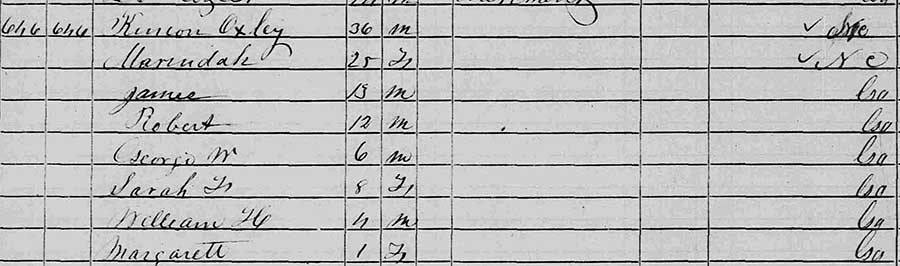 646 646 Kinion Oxley 36 m ✓
Marindah 25 F ✓ N C
James 13 m Ga
Robert 12 m Ga
George W 6 m Ga
Sarah F 8 F Ga
William H 4 m Ga
Margarett 1 F Ga